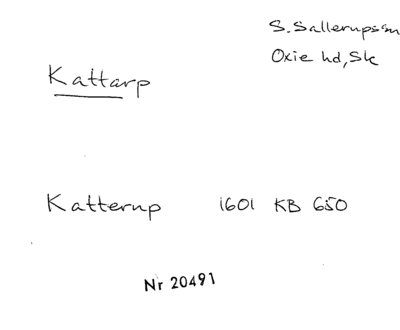 S. Sallerups sn
Oxie hd, Sk
Kattarp
Katterup 1601 KB 650
Nr 20491